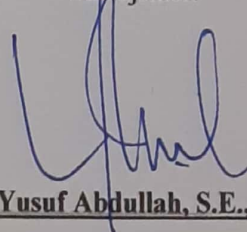 Yusuf Abdullah, S.E.,